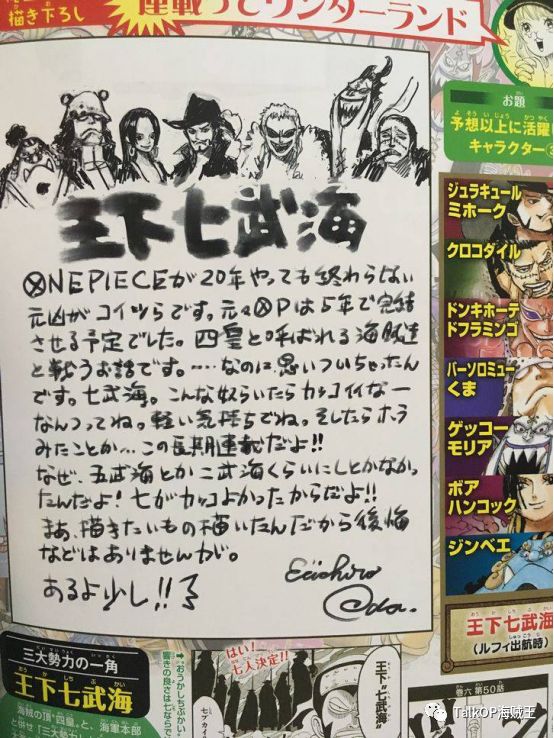 描き下ろし
連載つとワンダーランド
王下七武海
ONE PIECEが20年やっても終わらない
元凶がコイツらです。元々OPは5年で完結
させる予定でした。四皇と呼ばれる海賊達
と戦うお話です。……なのに思いついちゃったん
です。七武海。こんな奴らいたらカッコイイなー
なんつってね。軽い気持ちでね。そしたらホラ
みたことか…この長期連載だよ!!
なぜ、五武海とか二武海くらいにしとかなかっ
たんだよ!七がカッコよかったからだよ!!
まあ、描きたいもの描いたんだから後悔
などはありませんが。
あるよ少し!!
Eiichiro
Oda.
お題
よそういじょう かつやく
予想以上に活躍
キャラクター③
ジュラキュール
ミホーク
クロコダイル
ドンキホーテ
ドフラミンゴ
バーソロミュー
くま
ゲッコー
モリア
ボア
ハンコック
ジンベエ
おうか しちぶかい
王下七武海
しゅっこうじ
(ルフィ出航時)
さんだいせいりょく いっかく
三大勢力の一角
おうか しちぶかい
王下七武海
海賊の頂“四皇”と、海軍本部
と併せ「三大勢力」
➡おうかしちぶかい
響きの良さは七ならで
はい!
七人決定!!
七ブカイ
王下“七武海”
巻六 第50話
TalkOP海贼王